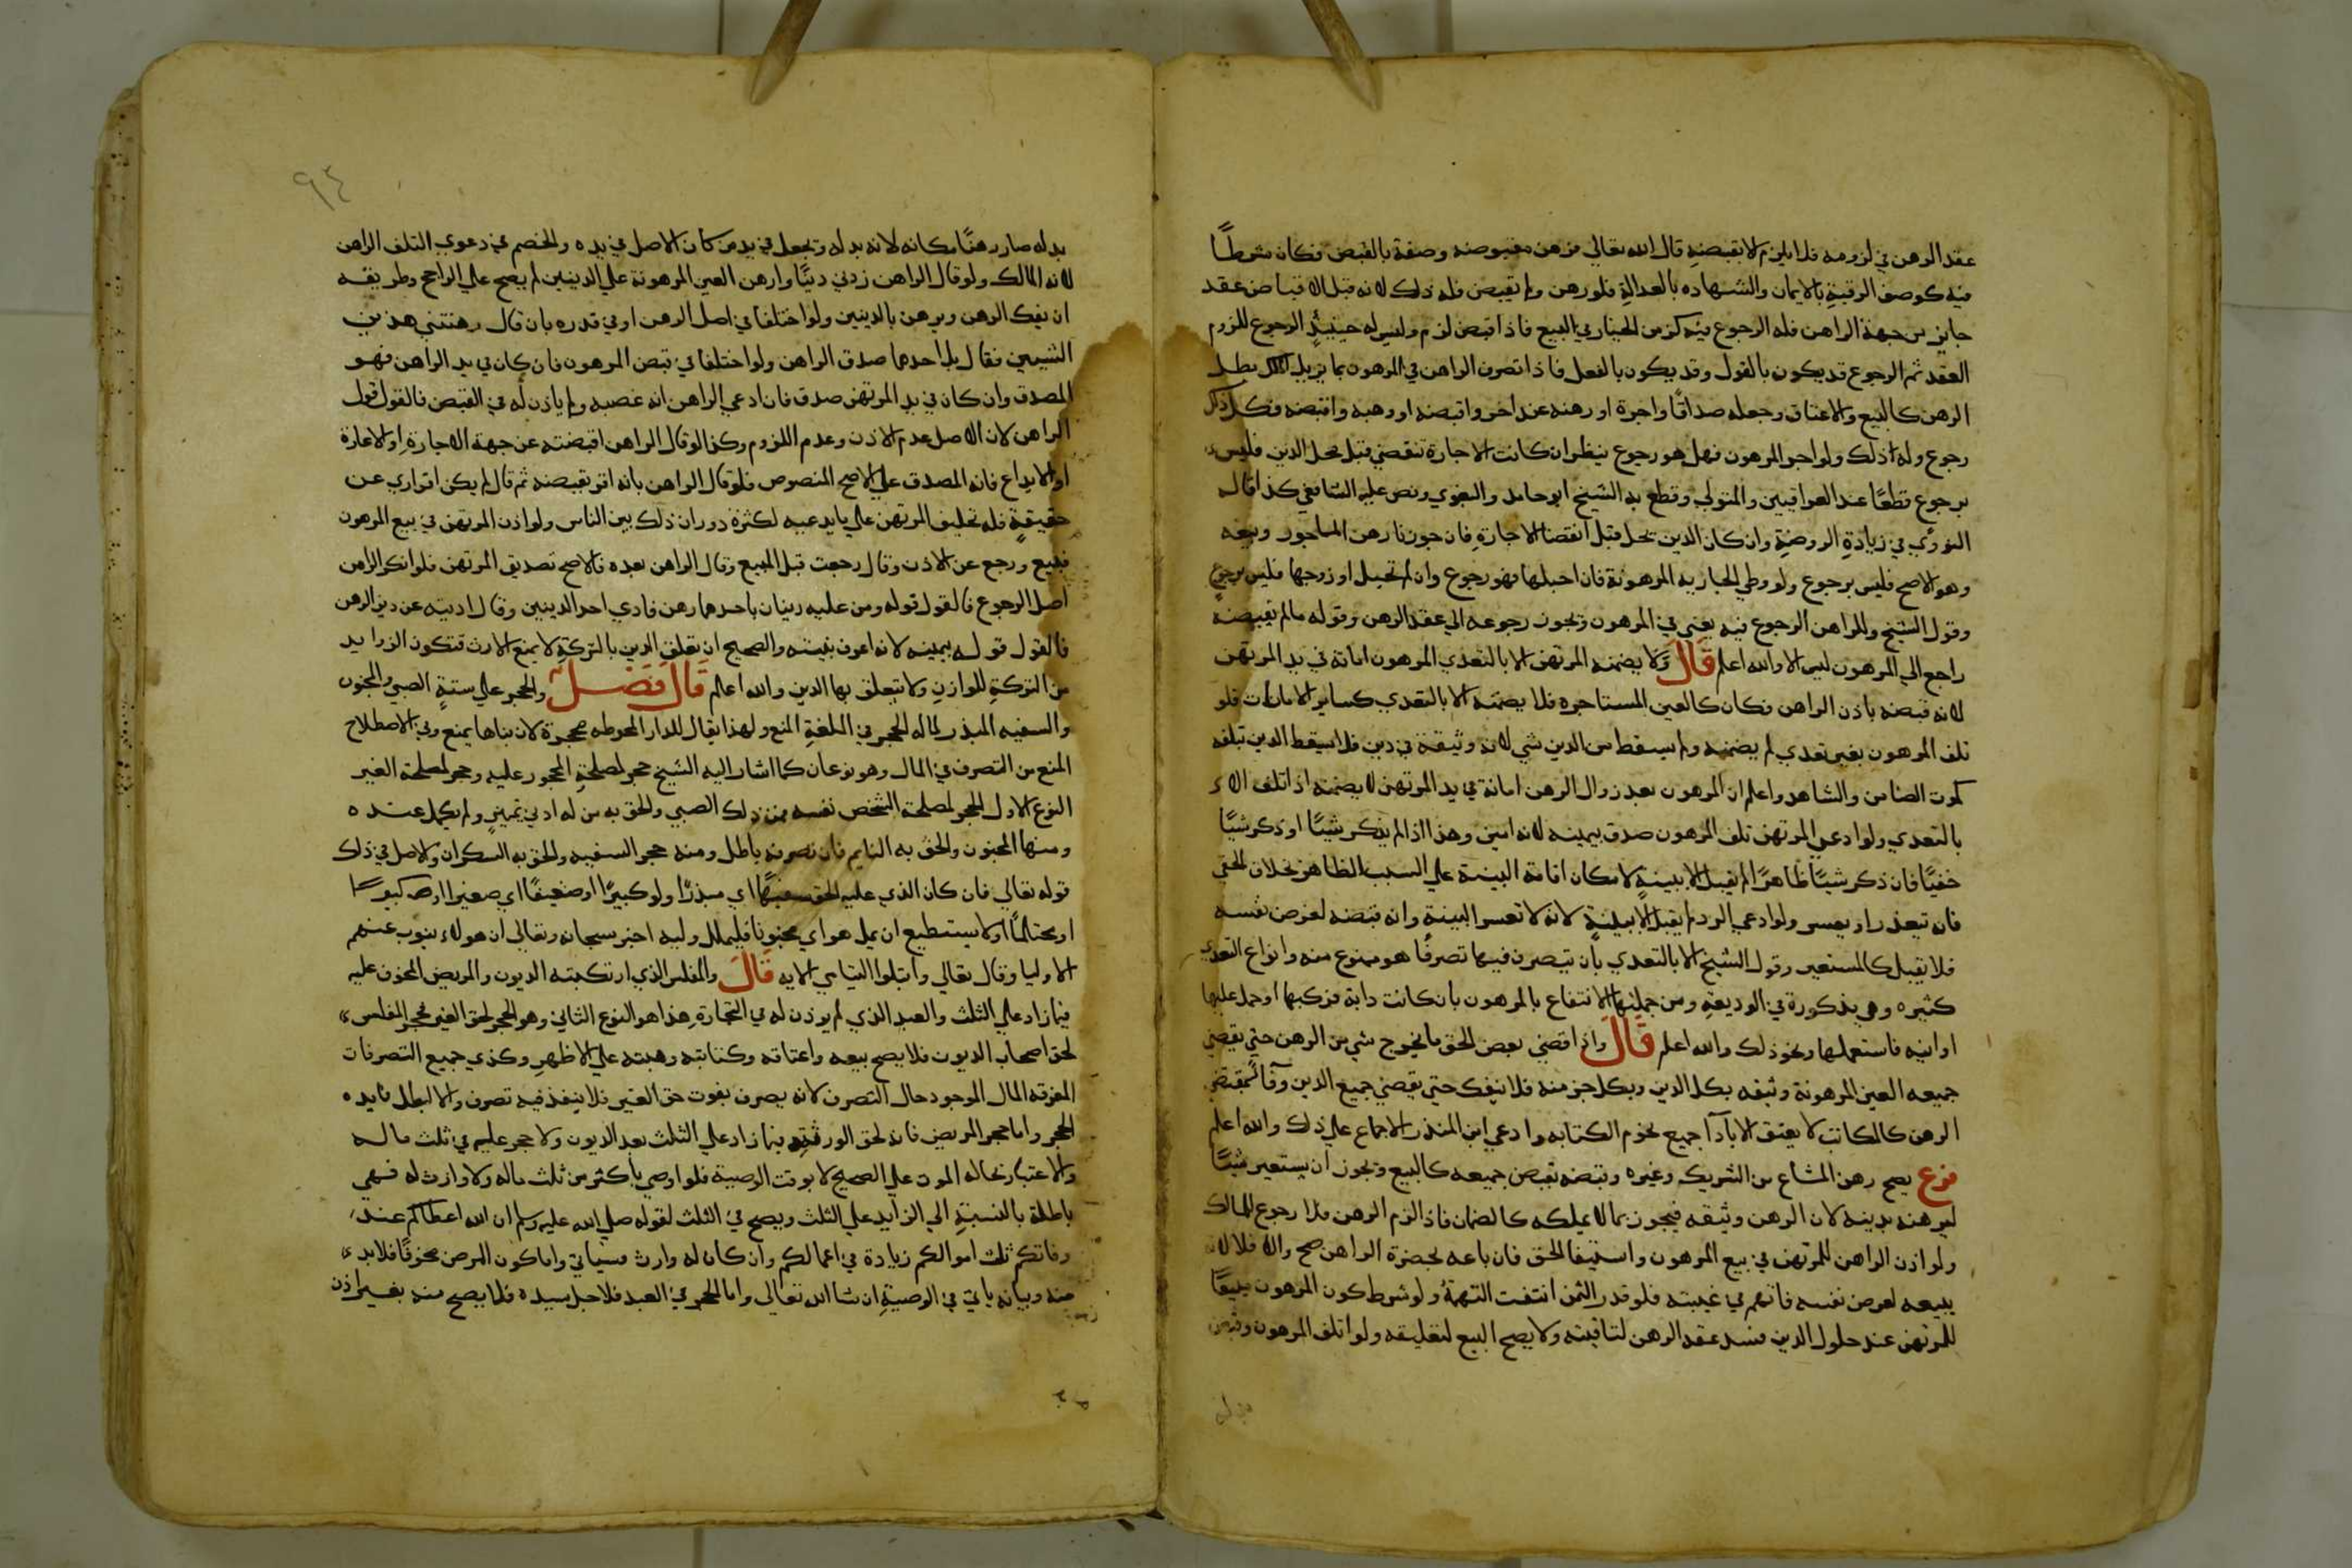 عقد الرهن في لزومه فلا يلزم الا بقبضه قال الله تعالي فرهن مقبوضه وصفة بالقبض فكان شرطًا
فيه كوصف الرقبة بالايمان والشهاده بالعدالة فلو رهن ولم يقبض فله ذلك لانه قبل الاقباض عقد
جايز من جهة الراهن فله الرجوع فيه كزمن الخيار في البيع فاذا قبض لزم وليس له حينيذٍ الرجوع للزوم
العقد ثم الرجوع قد يكون بالقول وقد يكون بالفعل فاذا تصرف الراهن في المرهون بما يزيل الملك بطل
الرهن كالبيع والاعتاق وجعله صداقًا واجرة او رهنه عند اخر واقبضه او وهبه واقبضه فكل ذلك
رجوع وله ذلك ولو اجر المرهون فهل هو رجوع ينظر ان كانت الاجارة تنقضي قبل محل الدين فليس
برجوع قطعًا عند العراقيين والمتولي وقطع به الشيخ ابو حامد والبغوي ونص عليه الشافعي كذا قاله
النووي في زيادة الروضة وان كان الدين يحل قبل انقضا الاجارة فان جوزنا رهن الماجور وبيعه
وهو الاصح فليس برجوع ولو وطي الجاريه المرهونة فان احبلها فهو رجوع وان لم تحبل او زوجها فليس برجوع
وقول الشيخ وللراهن الرجوع فيه يعني في المرهون ويجوز رجوعه الي عقد الرهن وقوله مالم يقبضه
راجع الي المرهون ليس الا والله اعلم قَالَ ولا يضمنه المرتهن الا بالتعدي المرهون امانة في يد المرتهن
لانه قبضه باذن الراهن فكان كالعين المستاجره فلا يضمنه الا بالتعدي كساير الامانات فلو
تلف المرهون بغير تعدي لم يضمنه ولم يسقط من الدين شي لانه وثيقة في دين فلا يسقط الدين بتلفه
كموت الضامن والشاهد واعلم ان المرهون بعد زوال الرهن امانة في يد المرتهن لا يضمنه اذا تلف الا
بالتعدي ولو ادعي المرتهن تلف المرهون صدق بيمينه لانه امين وهذا اذا لم يذكر شيًا او ذكر شيًا
خفيًا فان ذكر شيًا ظاهرًا لم يقبل الا ببينةٍ لامكان اقامة البينة علي السبب الظاهر بخلاف الخفي
فانه يتعذر او يعسر ولو ادعي الرد لم يقبل الا ببينةٍ لانه لا تعسر البينة وانه قبضه لغرض نفسه
فلا يقبل كالمستعير وقول الشيخ الا بالتعدي بان يتصرف فيها تصرفًا هو ممنوع منه وانواع التعدي
كثيره وهي مذكورة في الوديعة ومن جملتها الانتفاع بالمرهون بان كانت دابة فركبها او حمل عليها
او انيه فاستعملها ونحو ذلك والله اعلم قَالَ واذا قضي بعض الحق لم يخرج شي من الرهن حتي يقضي
جميعه العين المرهونة وثيقه بكل الدين وبكل جز منه فلا ينفك حتي يقضي جميع الدين وفاً بمقتضي
الرهن كالمكاتب لا يعتق الا باداآ جميع نجوم الكتابه وادعي ابن المنذر الاجماع علي ذلك والله اعلم
فرع يصح رهن المشاع من الشريك وغيره وقبضه بقبض جميعه كالبيع ويجوز ان يستعير شيًا
ليرهنه بدينه لان الرهن وثيقه فيجوز بما لا يملكه كالضمان فاذا لزم الرهن فلا رجوع للمالك
ولو اذن الراهن للمرتهن في بيع المرهون واستيفا الحق فان باعه بحضرة الراهن صح والا فلا لانه
يبيعه لغرض نفسه فاتهم في غيبته فلو قدر الثمن انتفت التهمةُ ولو شرط كون المرهون مبيعًا
للمرتهن عند حلول الدين فسد عقد الرهن لتاقيته ولا يصح البيع لتعليقه ولو اتلف المرهون وقبض
بدله
٩٤
بدله صار رهنًا مكانه لانه بدله وتجعل في يد من كان الاصل في يده والخصم في دعوي التلف الراهن
لانه المالك ولو قال الراهن زدني دينًا وارهن العين المرهونة علي الدينين لم يصح علي الراجح وطريقه
ان يفك الرهن ويرهن بالدينين ولو اختلفا في اصل الرهن او في قدره بان قال رهنتني هذين
الشيين فقال بل احدهما صدق الراهن ولو اختلفا في قبض المرهون فان كان في يد الراهن فهو
المصدق وان كان في يد المرتهن صدق فان ادعي الراهن انه غصبه ولم ياذن له في القبض فالقول قول
الراهن لان الاصل عدم الاذن وعدم اللزوم وكذا لو قال الراهن اقبضته عن جهة الاجارةِ او الاعارة
او الايداع فانه المصدق علي الاصح المنصوص فلو قال الراهن بانه اقر بقبضه ثم قال لم يكن اقراري عن
حقيقةٍ فله تحليف المرتهن علي ما يدعيه لكثرة دوران ذلك بين الناس ولو اذن المرتهن في بيع المرهون
فبيع ورجع عن الاذن وقال رجعت قبل المبيع وقال الراهن بعده فالاصح تصديق المرتهن فلو انكر الراهن
اصل الرجوع فالقول قوله ومن عليه دينان باحدهما رهن فادي احد الدينين وقال اديته عن دين الرهن
فالقول قوله بيمينه لانه اعرف بنيته والصحيح ان تعلق الدين بالتركة لا يمنع الارث فتكون الزوايد
من التركة للوارث ولا يتعلق بها الدين والله اعلم قَالَ فَصْلٌ والحجر علي ستةٍ الصبي والمجنون
والسفيه المبذر لماله الحجر في اللغة المنع ولهذا يقال للدار المحوطه محجرة لان بناها يمنع وفي الاصطلاح
المنع من التصرف في المال وهو نوعان كما اشار اليه الشيخ حجر لمصلحة المحجور عليه وحجر لمصلحة الغير
النوع الاول الحجر لمصلحة الشخص نفسه فمن ذلك الصبي والحق به من له ادني تمييزٍ ولم يكمل عنده
ومنها المجنون والحق به النايم فان تصرفه باطل ومنه حجر السفيه والحق به السكران والاصل في ذلك
قوله تعالي فان كان الذي عليه الحق سفيهًا اي مبذرًا ولو كبيرًا او ضعيفًا اي صغيرا او كبيرًا
او مختلًا او لا يستطيع ان يمل هو اي مجنونًا فليملل وليه اخبر سبحانه وتعالي ان هولاء ينوب عنهم
الاوليا وقال تعالي وابتلوا اليتامي الايه قَالَ والمفلس الذي ارتكبته الديون والمريض المخوف عليه
فيما زاد علي الثلث والعبد الذي لم يوذن له في التجارةِ هذا هو النوع الثاني وهو الحجر لحق الغير فحجر المفلس
لحق اصحاب الديون فلا يصح بيعه واعتاقه وكتابته وهبته علي الاظهر وكذي جميع التصرفات
المفوته المال الموجود حال التصرف لانه يصرف يفوت حق الغير فلا ينفذ فيه تصرف والا لبطل فايده
الحجر واما حجر المريض فانه لحق الورثةِ فيما زاد علي الثلث بعد الديون ولا حجر عليه في ثلث ماله
والاعتبار بحاله الموت علي الصحيح لا بوقت الوصية فلو اوصي باكثر من ثلث ماله ولا وارث له فهي
باطلة بالنسبةِ الي الزايد علي الثلث ويصح في الثلث لقوله صلي الله عليه وسلم ان الله اعطاكم عند
وفاتكم ثلث اموالكم زيادة في اعمالكم وان كان له وارث فسياتي واما كون المرض مخوفًا فلا بد
منه وبيانه ياتي في الوصيةِ ان شا الله تعالي واما الحجر في العبد فلاجل سيده فلا يصح منه بغير اذن